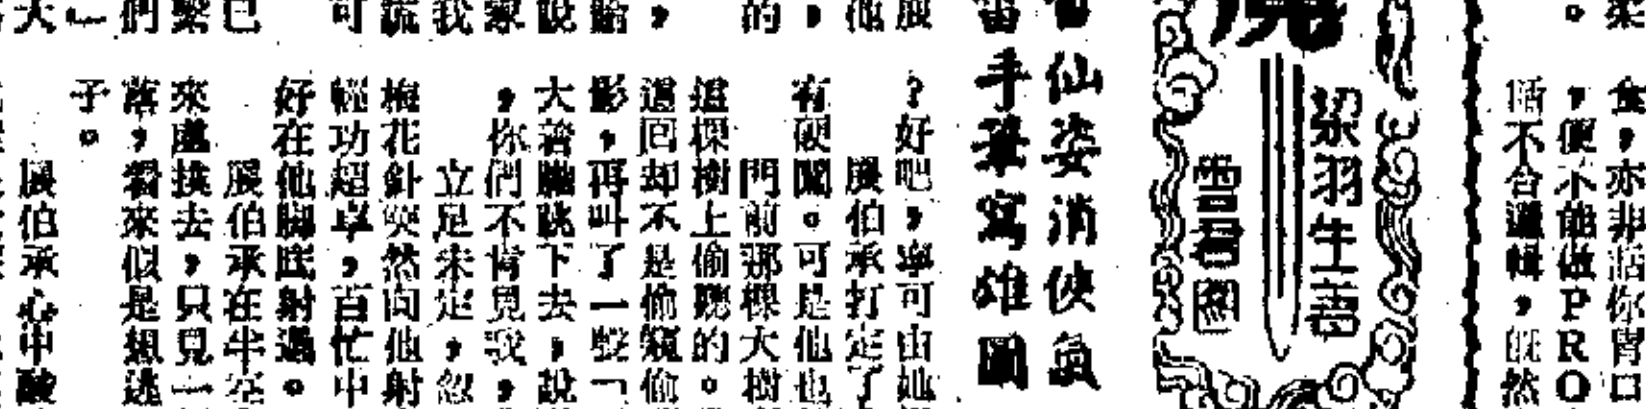 食，亦非話你胃口
，便不能做PRO
話不合邏輯，既然
梁羽生著
雲君圖
仙姿消俠氣
手筆寫雄圖
？好吧，寧可由她
展伯承打定了
有硬闖。可是他也
門前那棵大樹
這棵樹上偷聽的。
這回却不是偷窺偷
影，再叫了一聲「
大着膽跳下去，說
，你們不肯見我，
立足未定，忽
梅花針突然向他射
輕功超卓，百忙中
好在他脚底射過。
展伯承在半空
來處撲去，只見一
落，看來似是想逃
子。
展伯承心中酸